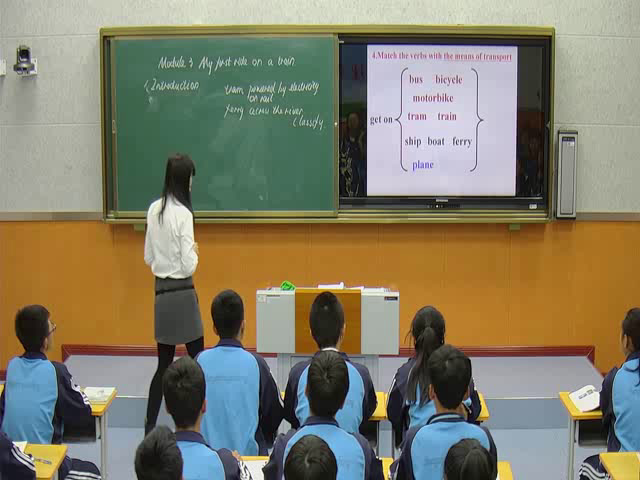 Module 3 My first ride on a train
Introduction
tram powered by electricity
on rail
ferry across the river
Classify
4.Match the verbs with the means of transport
bus bicycle
motorbike
get on tram train
ship boat ferry
plane